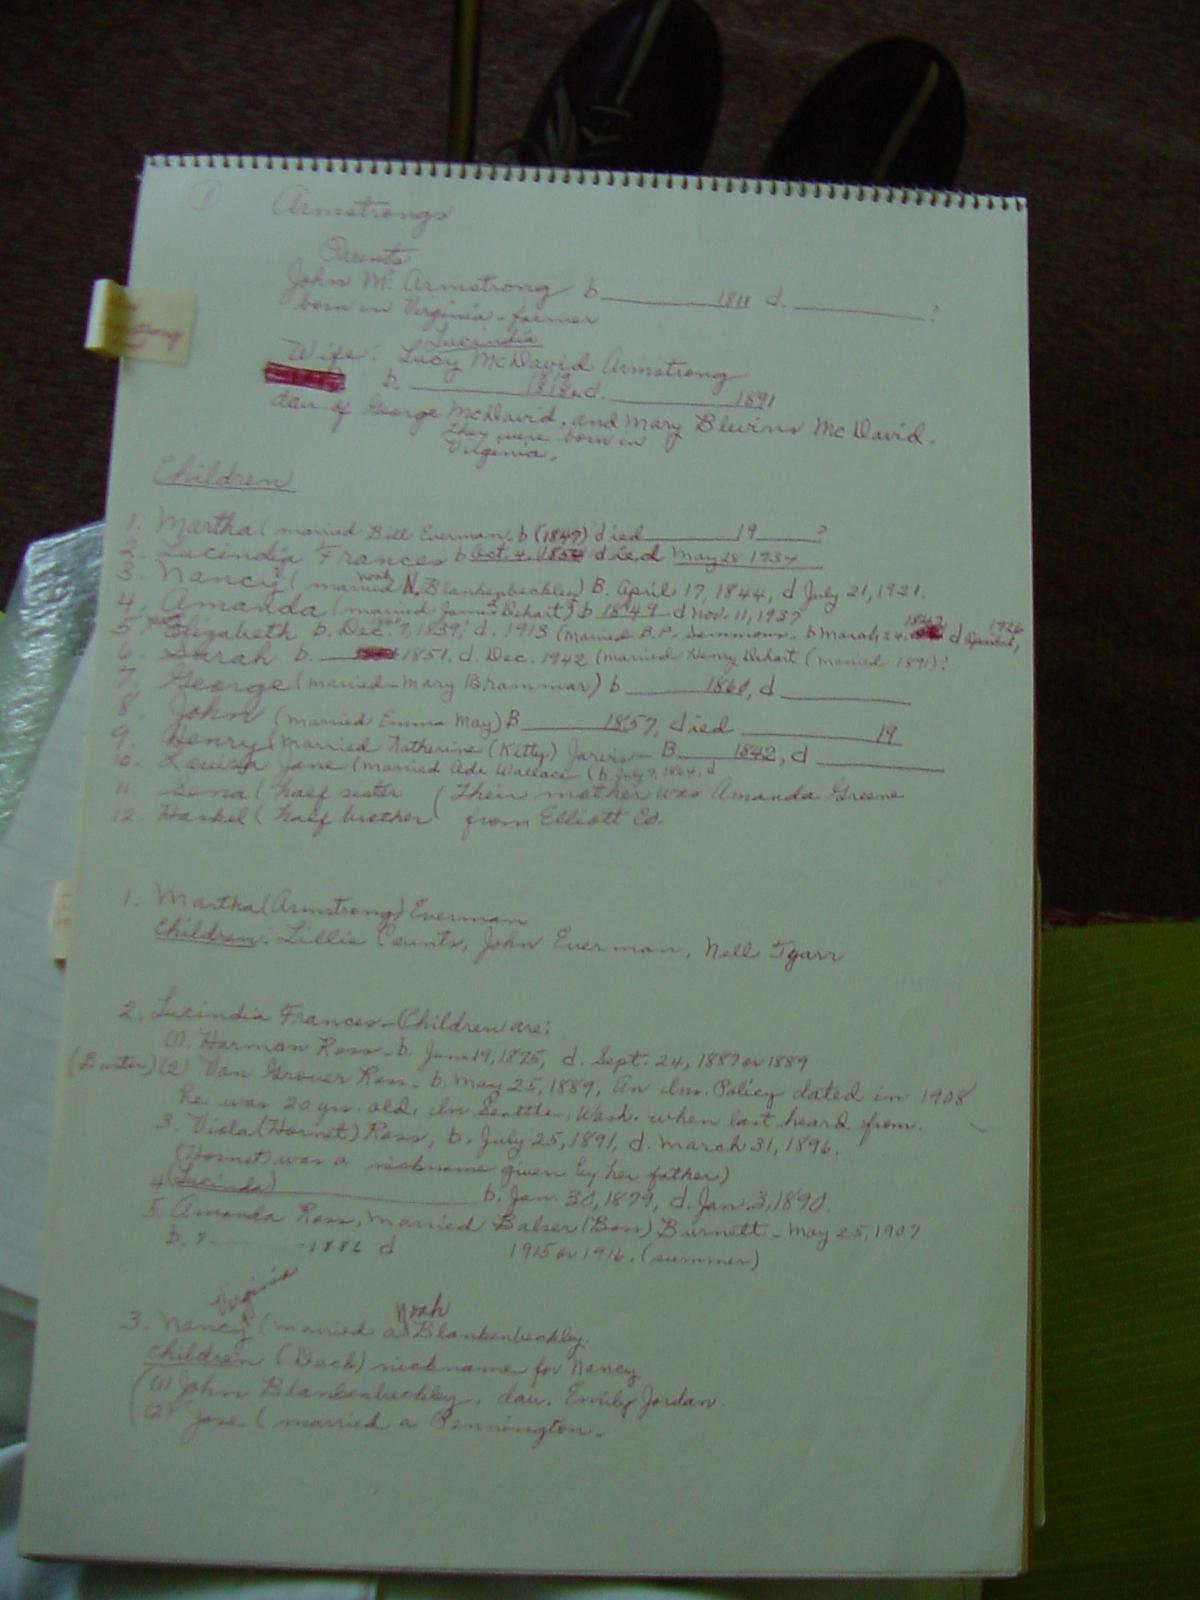 1 Armstrongs
Parents
John M. Armstrong b________1811 d.________?
born in Virginia - farmer
Lucindia
Wife: Lucy McDavid Armstrong
b. ________ d. ________1891
dau of George McDavid, and Mary Blevins McDavid.
they were born in
Virginia.
Children
1. Martha (married Bill Everman. b (1847) died________19____?
2. Lucindia Frances b Oct. 4, died May 28 1934
3. Nancy (married Noah N. Blankenbeckley) B. April 17, 1844, d July 21, 1921.
4. Amanda (married James Dehart) b 1849 d Nov. 11, 1937
5. Elizabeth b. Dec. 7, 1839, d. 1913 (married B.P. Sammons. b March 24, 1842 d April 1926
6. Sarah b. ____ 1851, d. Dec. 1942 (married Henry Dehart (married 1891)?
7. George (married Mary Brammar) b ______1860, d ________
8. John (married Emma May) B______1857, died ________19
9. Henry (married Katherine (Kitty) Jarvis - B____1842, d ________
10. Louisa Jane (married Ade Wallace (b. July 7, 1864, d
11. Gena (half sister (Their mother was Amanda Greene
12. Haskel (half brother ( from Elliott Co.
1. Martha (Armstrong) Everman
Children: Lillie Counts, John Everman, Nell Tyarr
2. Lucindia Frances - (Children are:
(1). Harman Ross - b. June 19, 1875, d. Sept. 24, 1887 or 1889
(2) Van Grover Ross - b. May 25, 1889, An Ins. Policy dated in 1908
he was 20 yrs. old, In Seattle, Wash. when last heard from.
3. Viola (Hornet) Ross, b. July 25, 1891, d. March 31, 1896.
(Hornet) was a nickname given by her father)
4 (Lucinda)________ b. Jan. 30, 1879, d. Jan. 3, 1890.
5. Amanda Ross, married Balser (Boss) Burnett - May 25, 1907
b. ?______-1886 d 1915 or 1916. (summer)
Virginia
3. Nancy (married a Noah Blankenbeckley.
Children (Duck) nickname for Nancy
(1) John Blankenbeckley, dau. Emily Jordan.
(2) Jane (married a Pennington.